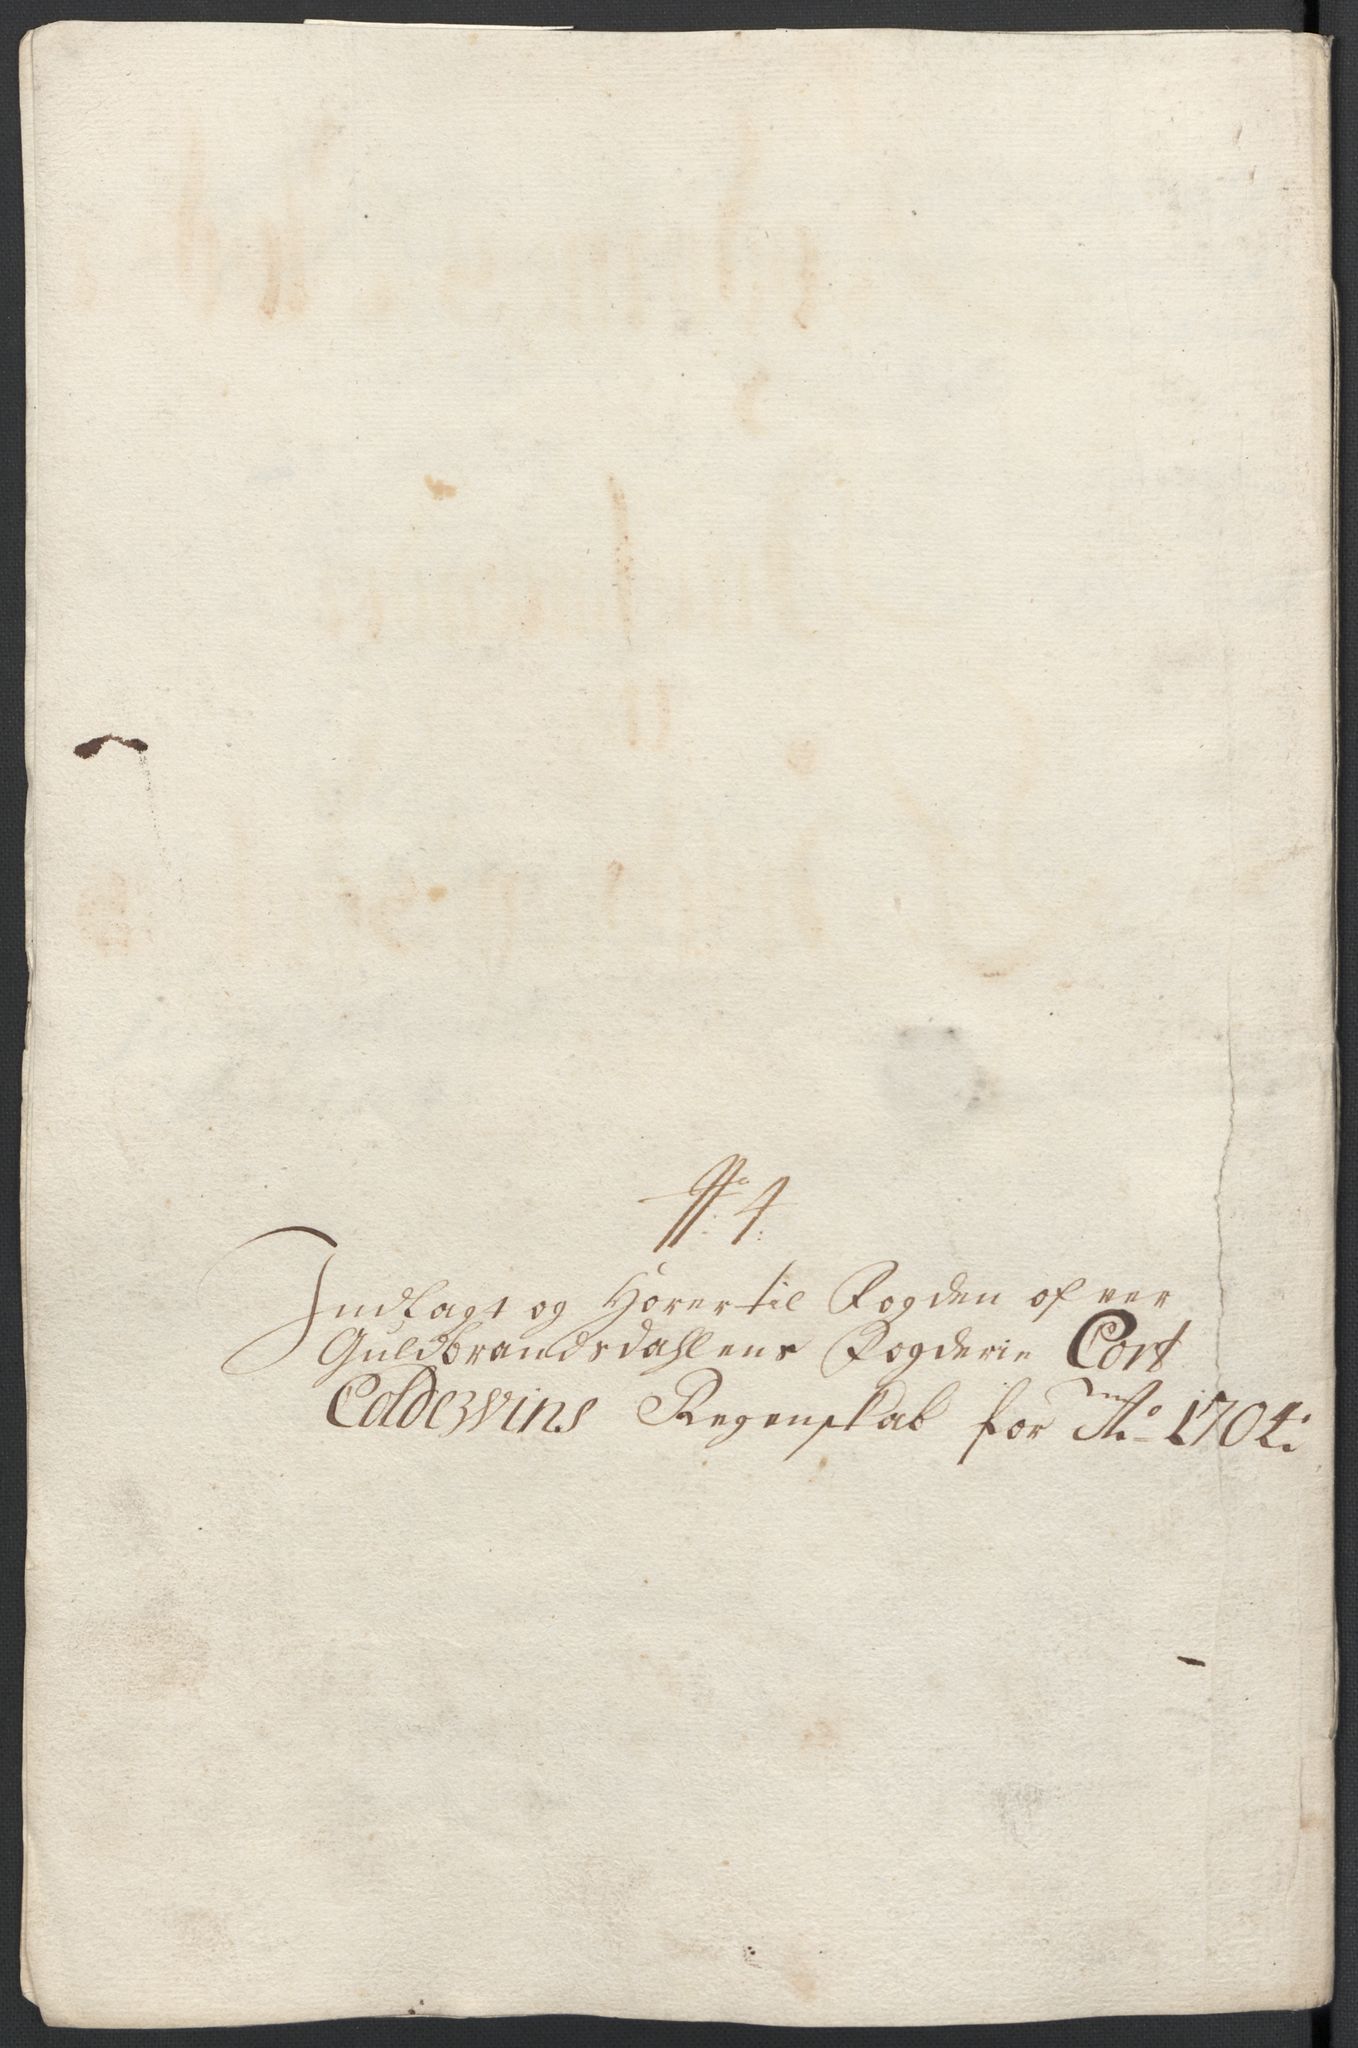 No 4
Indlagt og Hörer til Fogden of ver
Guldbrandsdahlens Fogderie Cort
Coldewins Regenskab for Ao 1704: